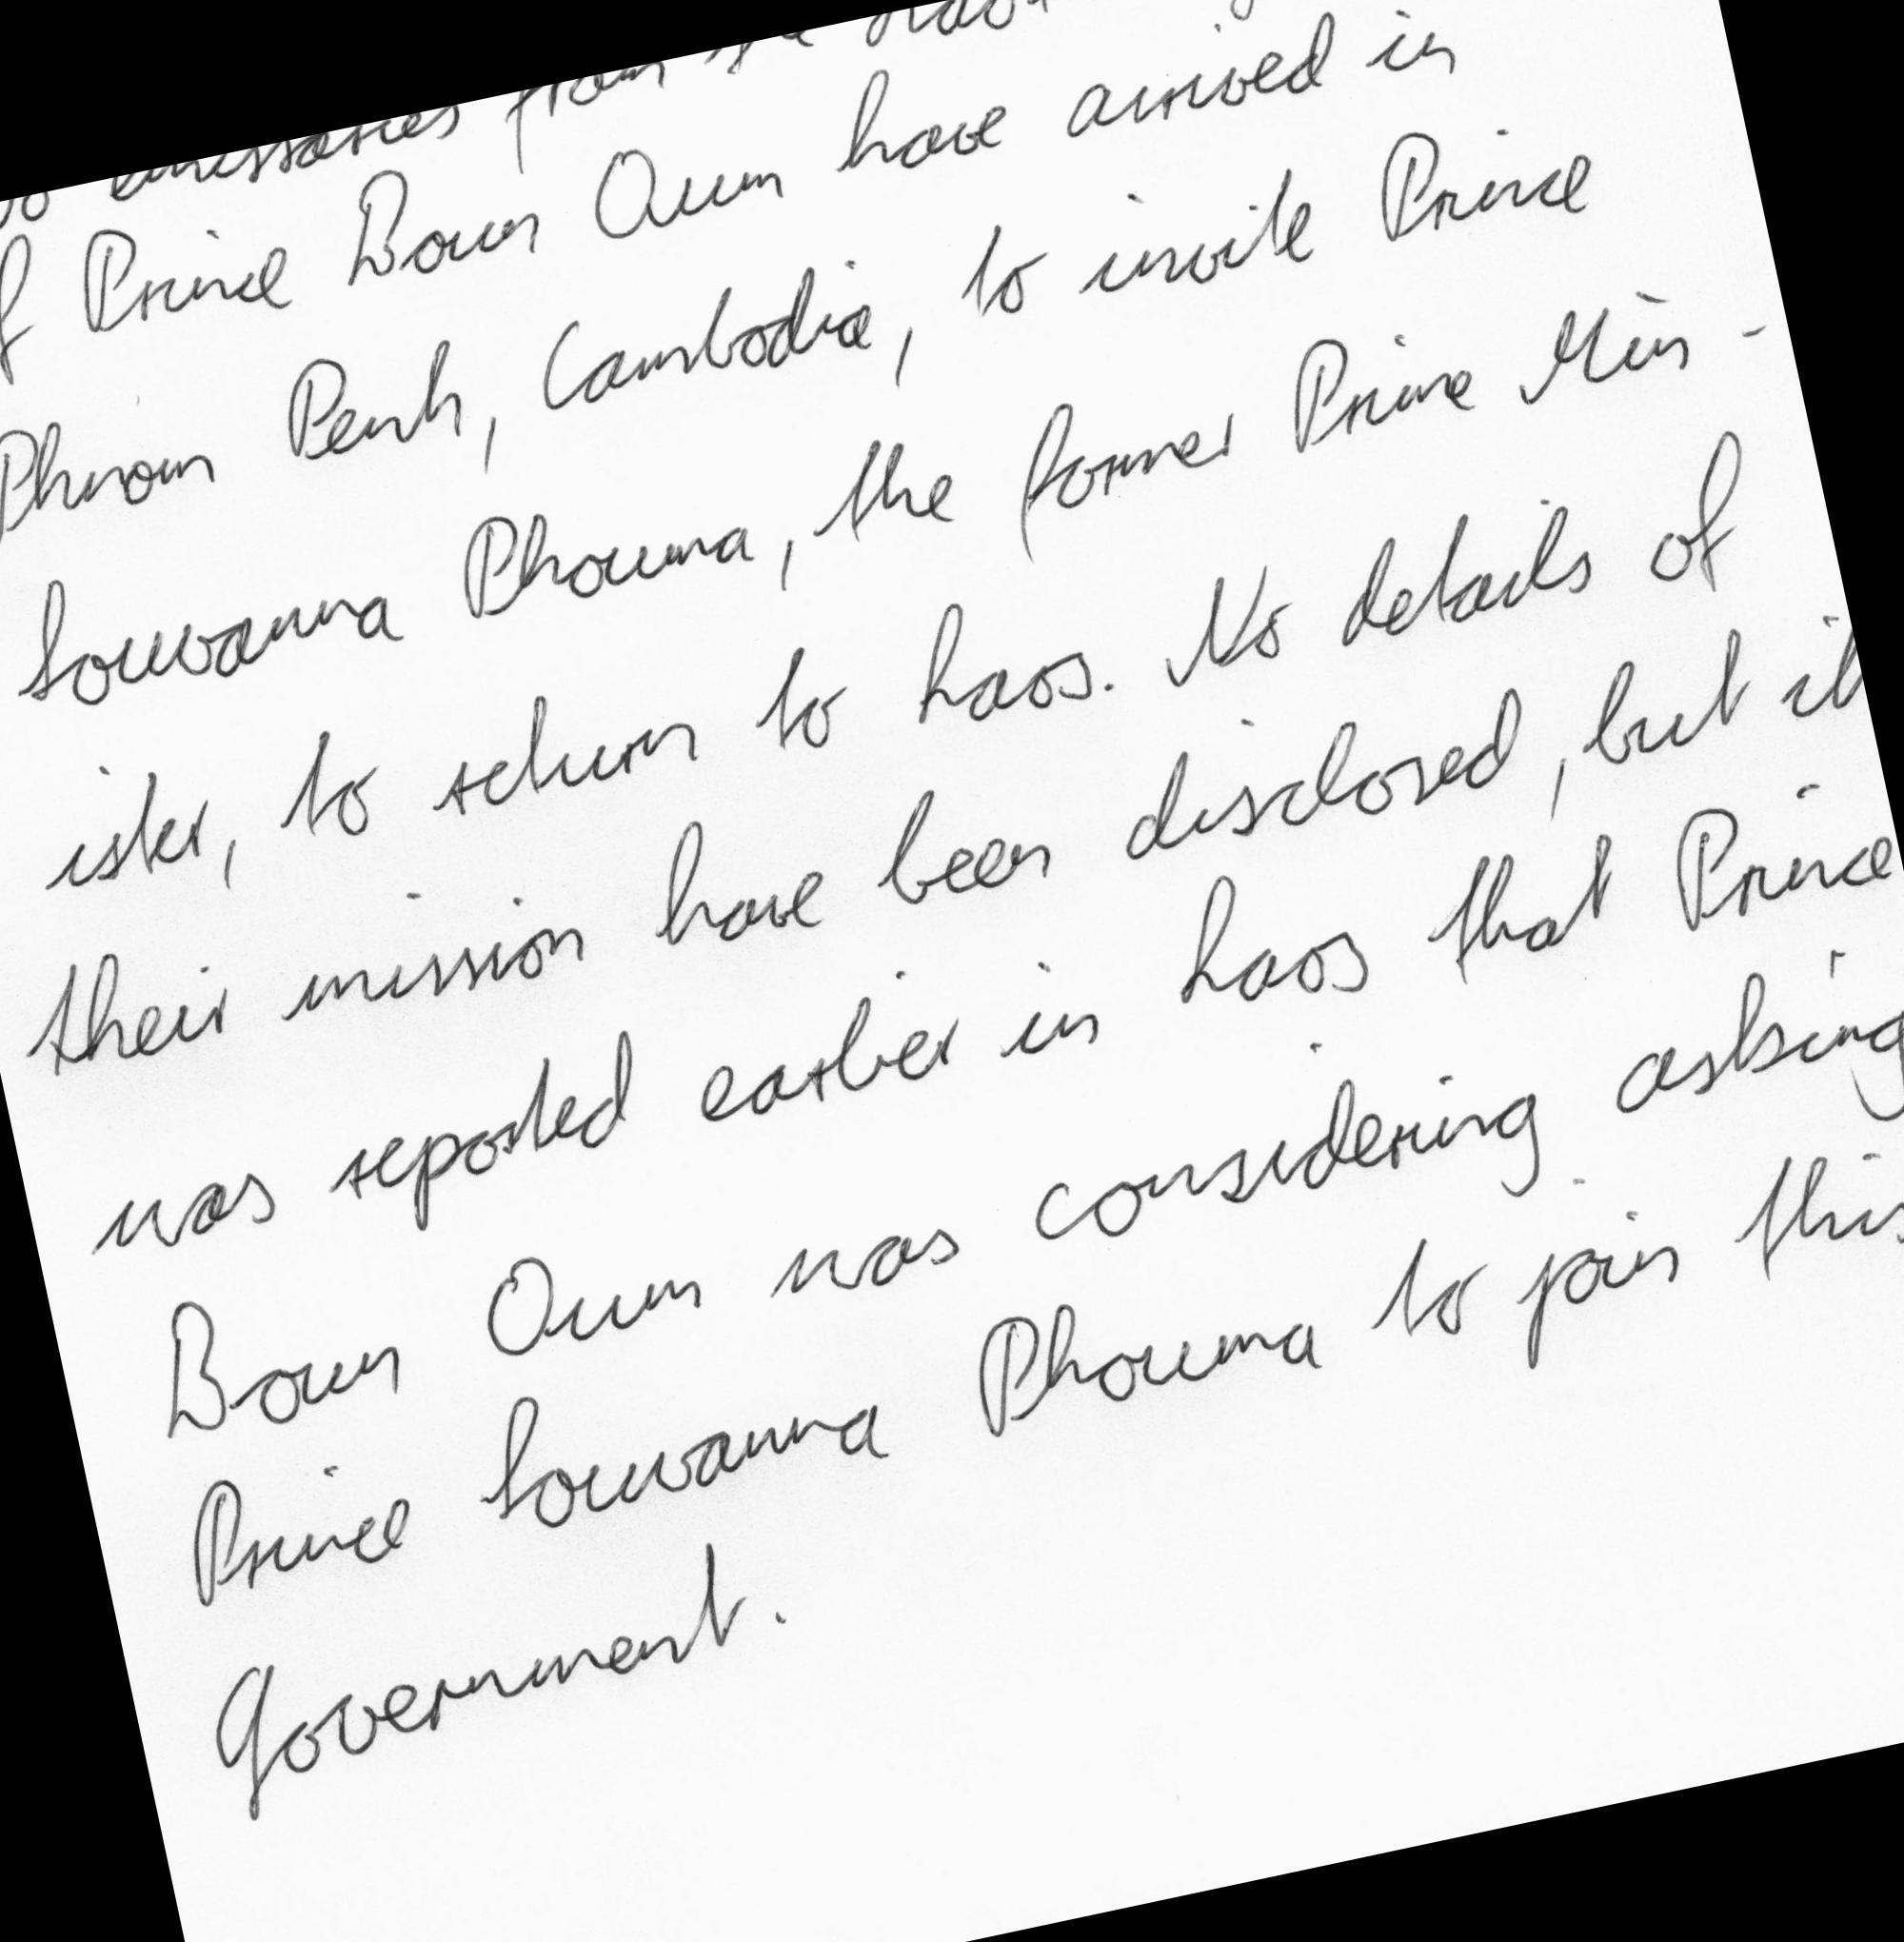 emissaries from the
of Prince Boun Oum have arrived in
Phnom Penh, Cambodia, to invite Prince
Souvanna Phouma, the former Prime Min-
ister, to return to Laos. No details of
their mission have been disclosed, but it
was reported earlier in Laos that Prince
Boun Oum was considering asking
Prince Souvanna Phouma to join this
Government.